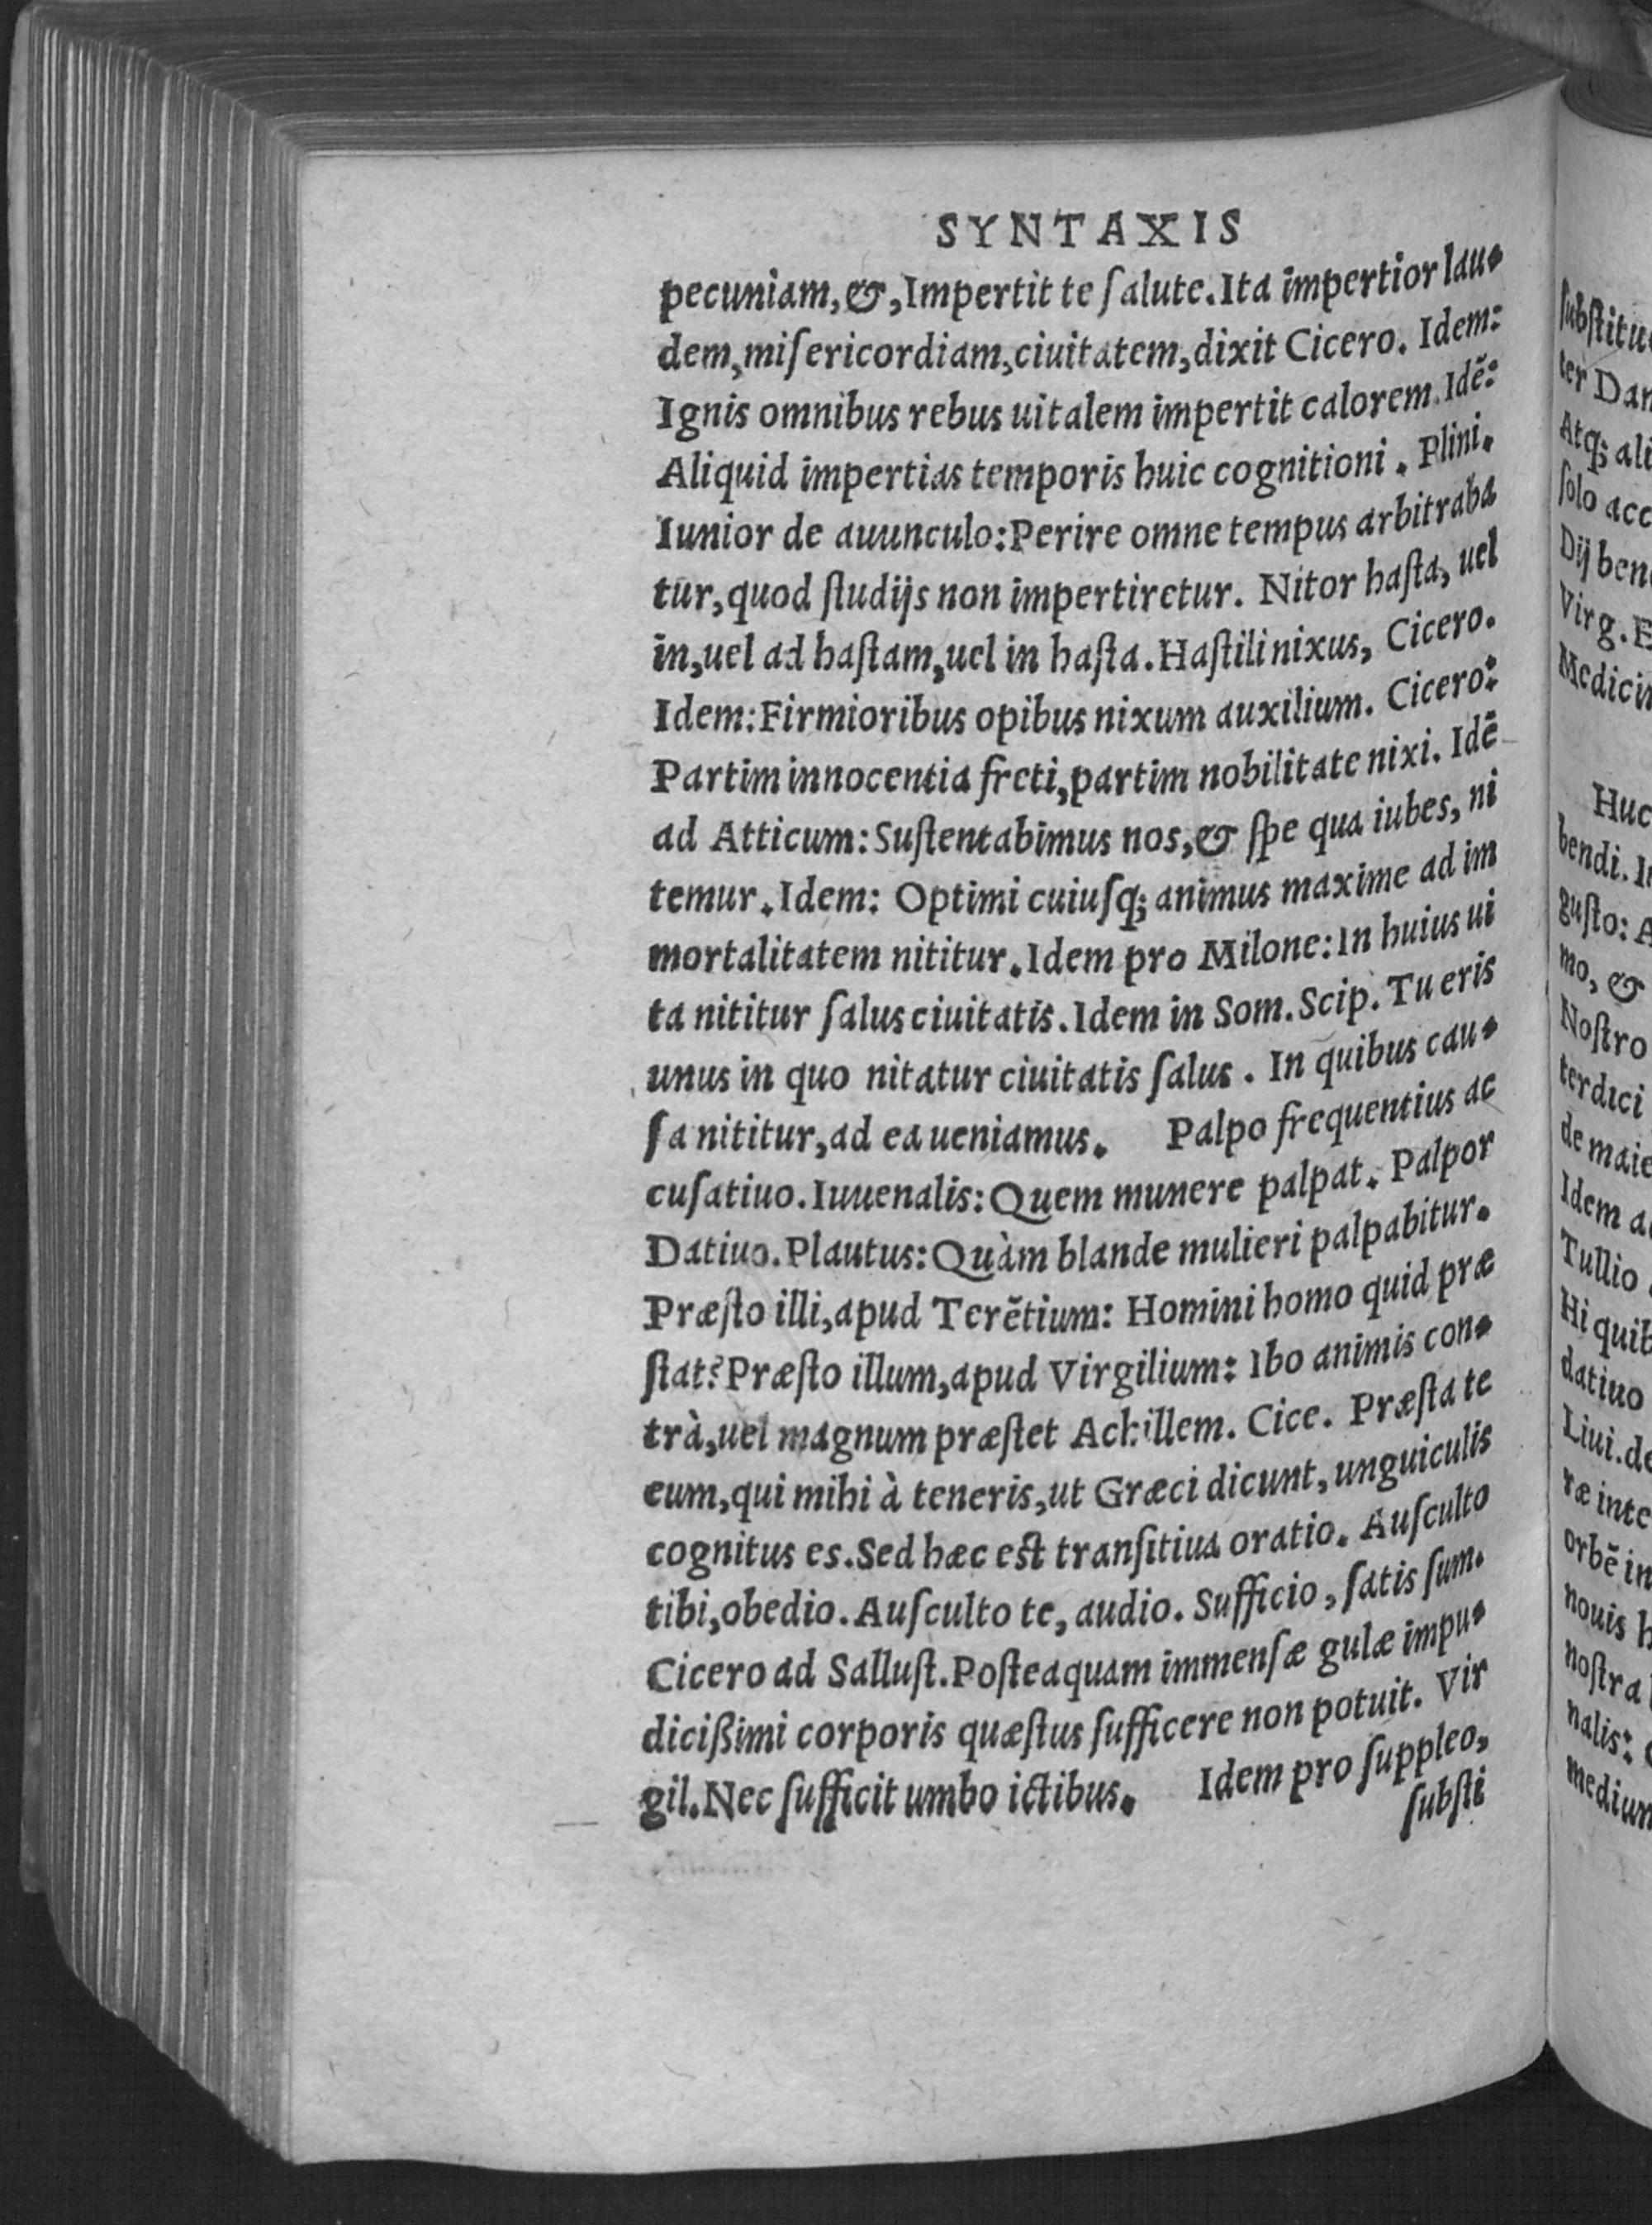 SYNTAXIS
pecuniam, &, Impertit te ſalute. Ita impertior lau-
dem, miſericordiam, ciuitatem, dixit Cicero. Idem:
Ignis omnibus rebus uitalem impertit calorem. Idē:
Aliquid impertias temporis huic cognitioni. Plini.
Iunior de auunculo: Perire omne tempus arbitraba
tur, quod ſtudijs non impertiretur. Nitor haſta, uel
in, uel ad haſtam, uel in haſta. Haſtili nixus, Cicero.
Idem: Firmioribus opibus nixum auxilium. Cicero:
Partim innocentia freti, partim nobilitate nixi. Idē
ad Atticum: Suſtentabimus nos, & ſpe qua iubes, ni
temur. Idem: Optimi cuiuſq; animus maxime ad im
mortalitatem nititur. Idem pro Milone: In huius ui
ta nititur ſalus ciuitatis. Idem in Som. Scip. Tu eris
unus in quo nitatur ciuitatis ſalus. In quibus cau-
ſa nititur, ad ea ueniamus. Palpo frequentius ac
cuſatiuo. Iuuenalis: Quem munere palpat. Palpor
Datiuo. Plautus: Quàm blande mulieri palpabitur.
Præſto illi, apud Terētium: Homini homo quid præ
ſtat? Præſto illum, apud Virgilium: Ibo animis con-
trà, uel magnum præſtet Achillem. Cice. Præſta te
eum, qui mihi à teneris, ut Græci dicunt, unguiculis
cognitus es. Sed hæc eſt tranſitiua oratio. Auſculto
tibi, obedio. Auſculto te, audio. Sufficio, ſatis ſum.
Cicero ad Salluſt. Poſteaquam immenſæ gulæ impu-
dicißimi corporis quæſtus ſufficere non potuit. Vir
gil. Nec ſufficit umbo ictibus. Idem pro ſuppleo,
ſubſti
ſubſtitu
ter Dan
Atq; ali
ſolo acc
Dij ben
Virg. E
Medicin
Huc
bendi. In
guſto: A
mo, &
Noſtro
terdici
de maie
Idem a
Tullio
Hi quib
datiuo
Liui. de
ræ inte
orbē in
nouis h
noſtra
nalis:
medium